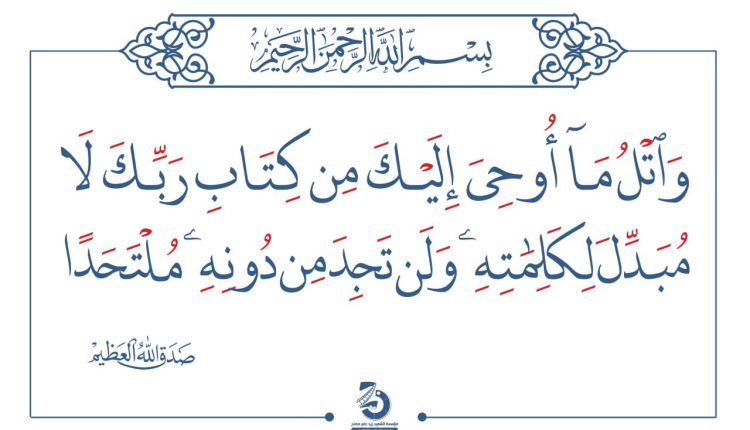 بِسْمِ اللَّهِ الرَّحْمَنِ الرَّحِيمِ
وَٱتْلُ مَآ أُوحِىَ إِلَيْكَ مِن كِتَابِ رَبِّكَ لَا
مُبَدِّلَ لِكَلِمَٰتِهِۦ وَلَن تَجِدَ مِن دُونِهِۦ مُلْتَحَدًا
صَدَقَ اللهُ العَظِيمْ
مؤسسة الشهيد زيد علي مصلح